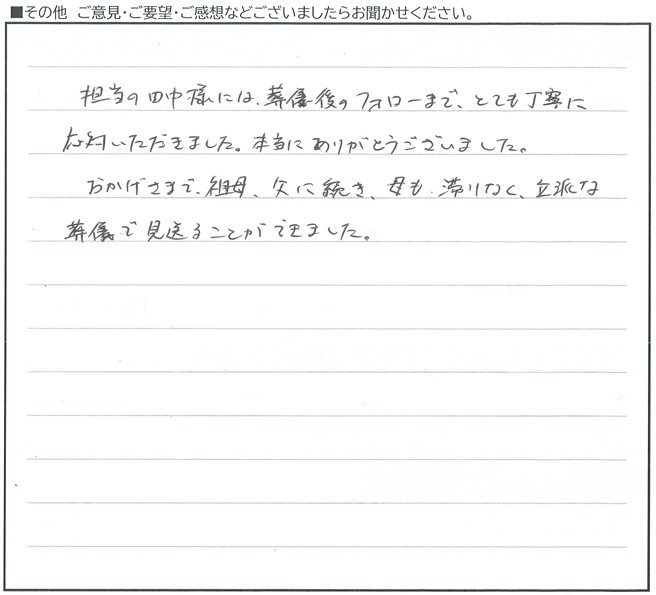 ■その他 ご意見・ご要望・ご感想などございましたらお聞かせください。
担当の田中様には、葬儀後のフォローまで、とても丁寧に
応対いただきました。本当にありがとうございました。
おかげさまで、祖母、父に続き、母も滞りなく、立派な
葬儀で見送ることができました。